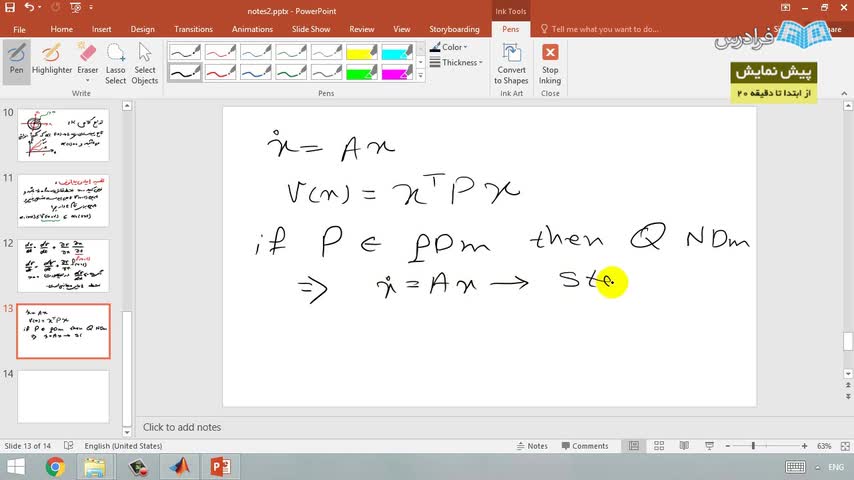 notes2.pptx - PowerPoint
Ink Tools
File
Home
Insert
Design
Transitions
Animations
Slide Show
Review
View
Storyboarding
Pens
Tell me what you want to do...
Share
فرادرس
پیش نمایش
از ابتدا تا دقیقه ۲۰
Pen
Highlighter
Eraser
Lasso Select
Select Objects
Color
Thickness
Convert to Shapes
Stop Inking
Write
Pens
Ink Art
Close
10
11
12
13
ẋ = Ax
V(x) = xᵀPx
if P ∈ PDm then Q NDm
⇒ ẋ = Ax → St
14
ẋ = Ax
V(x) = xᵀPx
if P ∈ PDm then Q NDm
⇒ ẋ = Ax → Sta
Click to add notes
Slide 13 of 14
English (United States)
Notes
Comments
63%
ENG